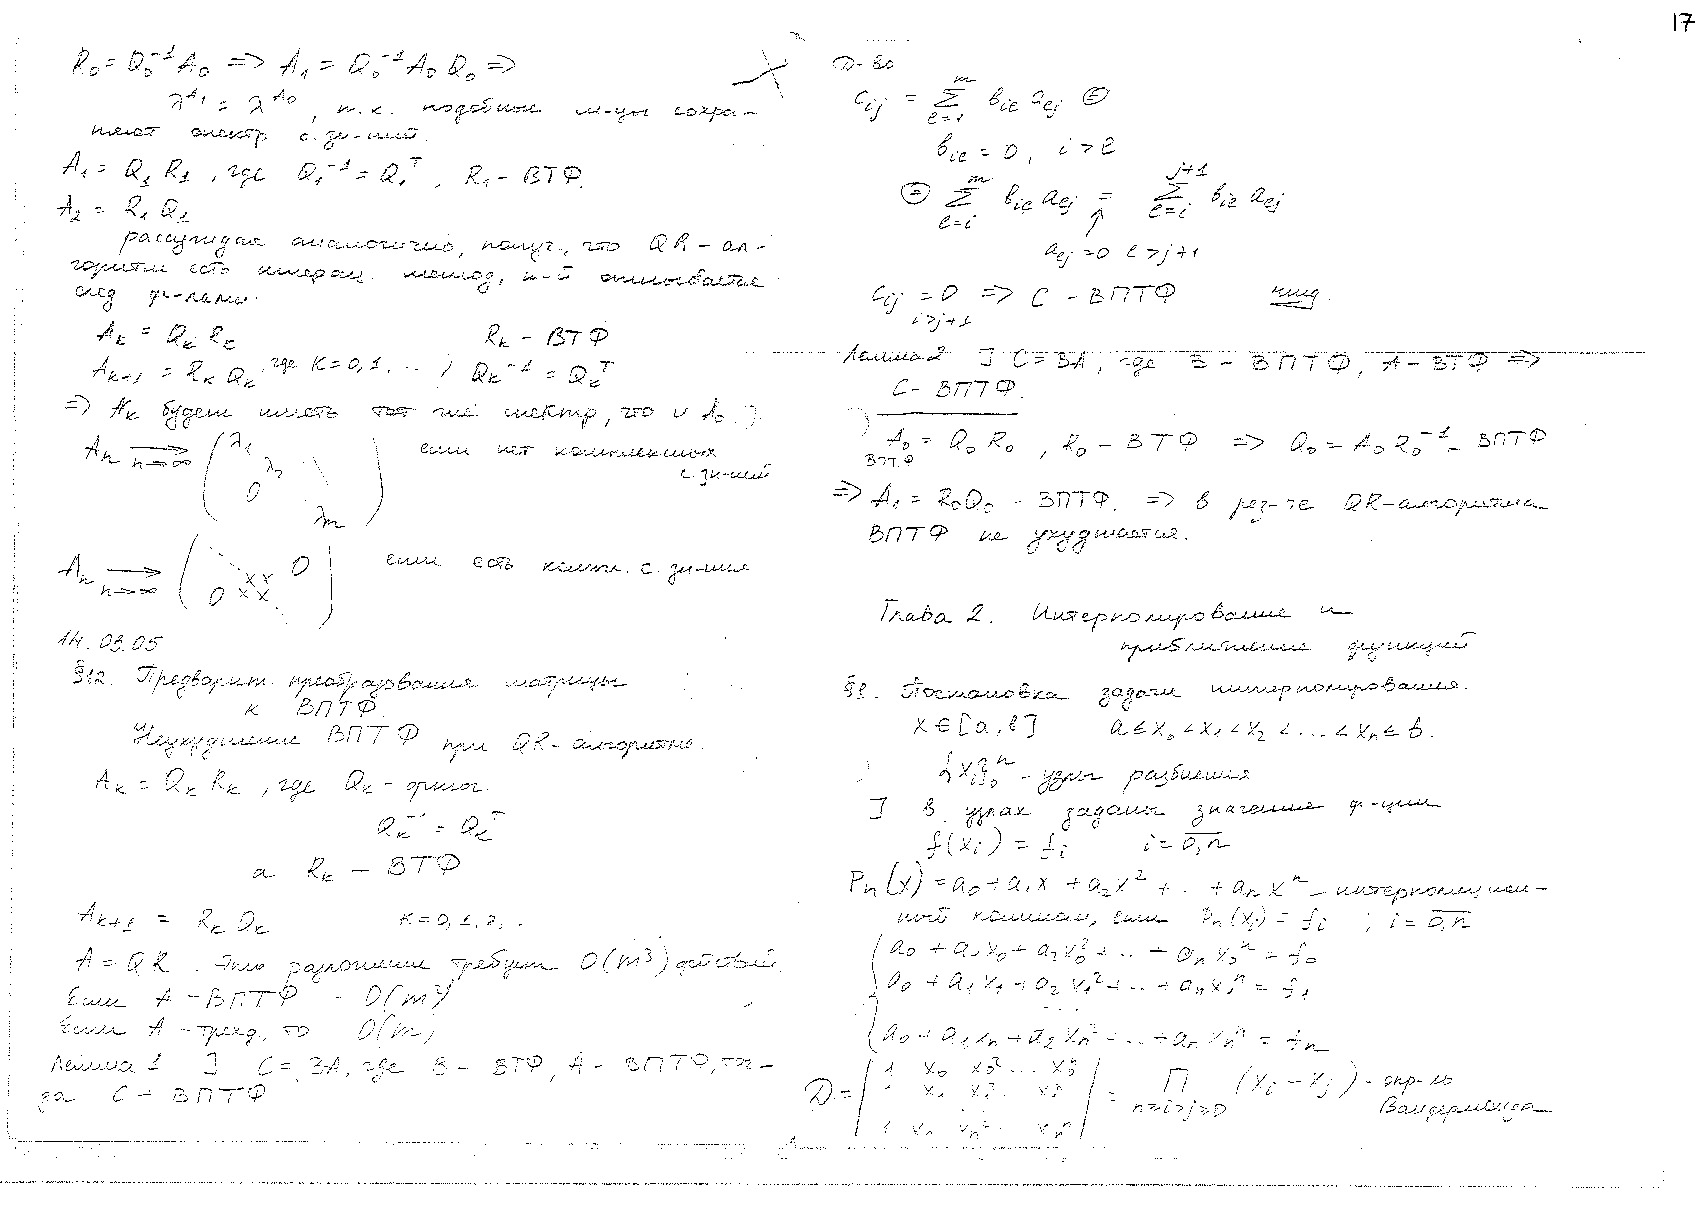 17
R₀ = Q₀⁻¹A₀ => A₁ = Q₀⁻¹A₀Q₀ =>
λ^A₁ = λ^A₀, т.к. подобные м-цы сохра-
няют спектр с.зн-ний.
A₁ = Q₁R₁, где Q₁⁻¹ = Q₁ᵀ, R₁ - ВТФ.
A₂ = R₁Q₁
рассуждая аналогично, получ., что QR - ал-
горитм есть итерац. метод, к-й описывается
след ф-лами:
Aₖ = QₖRₖ Rₖ - ВТФ
Aₖ₊₁ = RₖQₖ, где k = 0,1,...; Qₖ⁻¹ = Qₖᵀ
=> Aₖ будет иметь тот же спектр, что и A₀.
Aₙ → n→∞ ( λ₁ λ₂ 0 λm ) если нет комплексных
с.зн-ний
Aₙ → n→∞ ( 0 xx 0 xx ) если есть компл. с. зн-ния
14.03.05
§12. Предварит. преобразования матрицы
к ВПТФ.
Неухудшение ВПТФ при QR-алгоритме.
Aₖ = QₖRₖ, где Qₖ - ортог.
Qₖ⁻¹ = Qₖᵀ
а Rₖ - ВТФ
Aₖ₊₁ = RₖQₖ k = 0,1,2,..
A = QR. Это разложение требует O(m³) действий.
Если A - ВПТФ - O(m²)
Если A - тред, то O(m)
Лемма 1 ] C = BA, где B - ВТФ, A - ВПТФ, тог-
да C - ВПТФ
Д-во
cᵢⱼ = Σ_{l=1}^{m} bᵢₗ aₗⱼ ⊜
bᵢₗ = 0, i > l
⊜ Σ_{l=i}^{m} bᵢₗ aₗⱼ = Σ_{l=i}^{j+1} bᵢₗ aₗⱼ
↑
aₗⱼ = 0 l > j+1
cᵢⱼ = 0 => C - ВПТФ чтд.
i>j+1
Лемма 2 ] C = BA, где B - ВПТФ, A - ВТФ =>
C - ВПТФ.
A₀ = Q₀R₀, R₀ - ВТФ => Q₀ = A₀R₀⁻¹ - ВПТФ
ВПТФ
=> A₁ = R₀Q₀ - ВПТФ. => в рез-те QR-алгоритма
ВПТФ не ухудшается.
Глава 2. Интерполирование и
приближение функций
§1. Постановка задачи интерполирования.
x ∈ [a,b] a ≤ x₀ < x₁ < x₂ < ... < xₙ ≤ b.
{xᵢ}₀ⁿ - узлы разбиения
] в узлах заданы значение ф-ции
f(xᵢ) = fᵢ i = 0,n
Pₙ(x) = a₀ + a₁x + a₂x² + .. + aₙxⁿ - интерполяцион-
ный полином, если Pₙ(xᵢ) = fᵢ ; i = 0,n
{ a₀ + a₁x₀ + a₂x₀² + .. + aₙx₀ⁿ = f₀
a₀ + a₁x₁ + a₂x₁² + .. + aₙx₁ⁿ = f₁
a₀ + a₁xₙ + a₂xₙ² + .. + aₙxₙⁿ = fₙ
D = | 1 x₀ x₀² ... x₀ⁿ
1 x₁ x₁² ... x₁ⁿ
1 xₙ xₙ² ... xₙⁿ | = Π_{n≥i>j≥0} (xᵢ - xⱼ) - опр-ль
Вандермонда